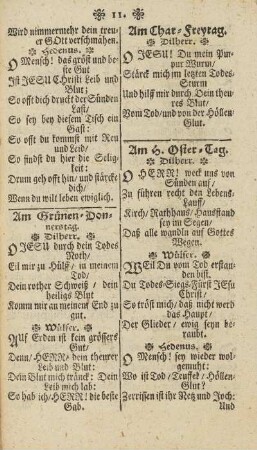 11.
Wird nimmermehr dein treuer
GOtt verschmähen.
Hedenus.
O Mensch! das gröst und beste
Gut
Ist JESU Christi Leib und
Blut;
So offt dich druckt der Sünden
Last/
So sey bey diesem Tisch ein
Gast:
So offt du kommst mit Reu
und Leid/
So findst du hier die Seligkeit;
Drum geh offt hin/ und stärcke
dich/
Wenn du wilt leben ewiglich.
Am Grünen-Donnerstag.
Dilherr.
O JESU durch dein Todes
Noth/
Eil mir zu Hülff/ in meinem
Tod/
Dein rother Schweiß/ dein
heiligs Blut
Komm mir an meinem End zu
gut.
Wülfer.
Auf Erden ist kein grössers
Gut/
Denn/ HERR/ dein theurer
Leib und Blut:
Dein Blut mich tränck: Dein
Leib mich lab:
So hab ich/ HERR! die beste
Gab.
Am Char-Freytag.
Dilherr.
O JESU! Du mein Purpur
Wurm/
Stärck mich im letzten Todes-
Sturm
Und hilff mir durch Dein theures
Blut/
Vom Tod/ und von der Höllen-
Glut.
Am H. Oster-Tag.
Dilherr.
O HERR! weck uns von
Sünden auf/
Zu führen recht den Lebens-
Lauff/
Kirch/ Rathhaus/ Hausstand
sey im Segen/
Daß alle wandln auf Gottes
Wegen.
Wülfer.
Weil Du vom Tod erstanden
bist.
Du Todes-Siegs-Fürst JEsu
Christ/
So tröst mich/ daß nicht werd
das Haupt/
Der Glieder/ ewig seyn beraubt.
Hedenus.
O Mensch! sey wieder wolgemuht:
Wo ist Tod/ Teuffel/ Höllen-
Glut?
Zerrissen ist ihr Netz und Joch:
Und